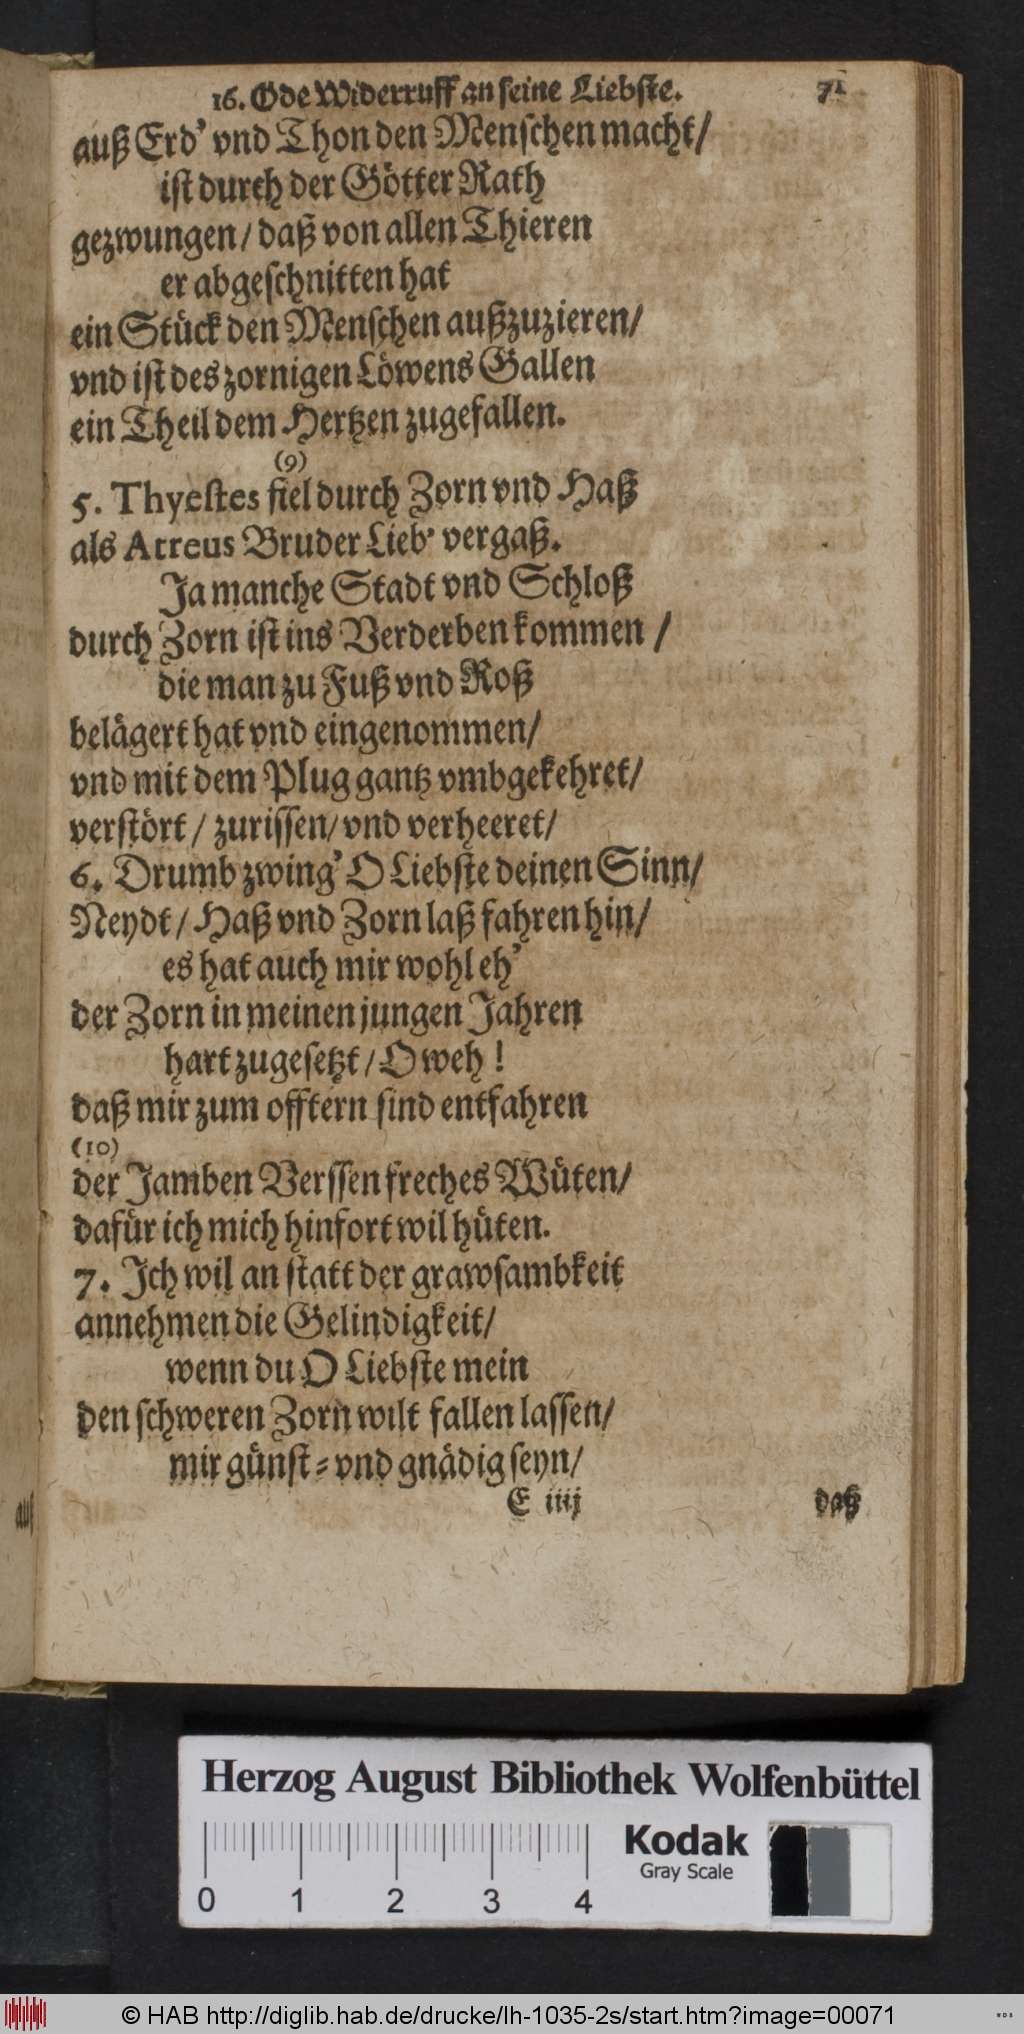 16. Ode Widerruff an seine Liebste. 71
auß Erd' vnd Thon den Menschen macht/
ist durch der Götter Rath
gezwungen/ daß von allen Thieren
er abgeschnitten hat
ein Stück den Menschen außzuzieren/
vnd ist des zornigen Löwens Gallen
ein Theil dem Hertzen zugefallen.
(9)
5. Thyestes fiel durch Zorn vnd Haß
als Atreus Bruder Lieb' vergaß.
Ja manche Stadt vnd Schloß
durch Zorn ist ins Verderben kommen /
die man zu Fuß vnd Roß
belägert hat vnd eingenommen/
vnd mit dem Plug gantz vmbgekehret/
verstört / zurissen/ vnd verheeret/
6. Drumb zwing' O Liebste deinen Sinn/
Neydt / Haß vnd Zorn laß fahren hin/
es hat auch mir wohl eh'
der Zorn in meinen jungen Jahren
hart zugesetzt / O weh !
daß mir zum offtern sind entfahren
(10)
der Jamben Verssen freches Wüten/
dafür ich mich hinfort wil hüten.
7. Ich wil an statt der grawsambkeit
annehmen die Gelindigkeit/
wenn du O Liebste mein
den schweren Zorn wilt fallen lassen/
mir günst- vnd gnädig seyn/
E iiij daß
auß
Herzog August Bibliothek Wolfenbüttel
Kodak
Gray Scale
0 1 2 3 4
© HAB http://diglib.hab.de/drucke/lh-1035-2s/start.htm?image=00071